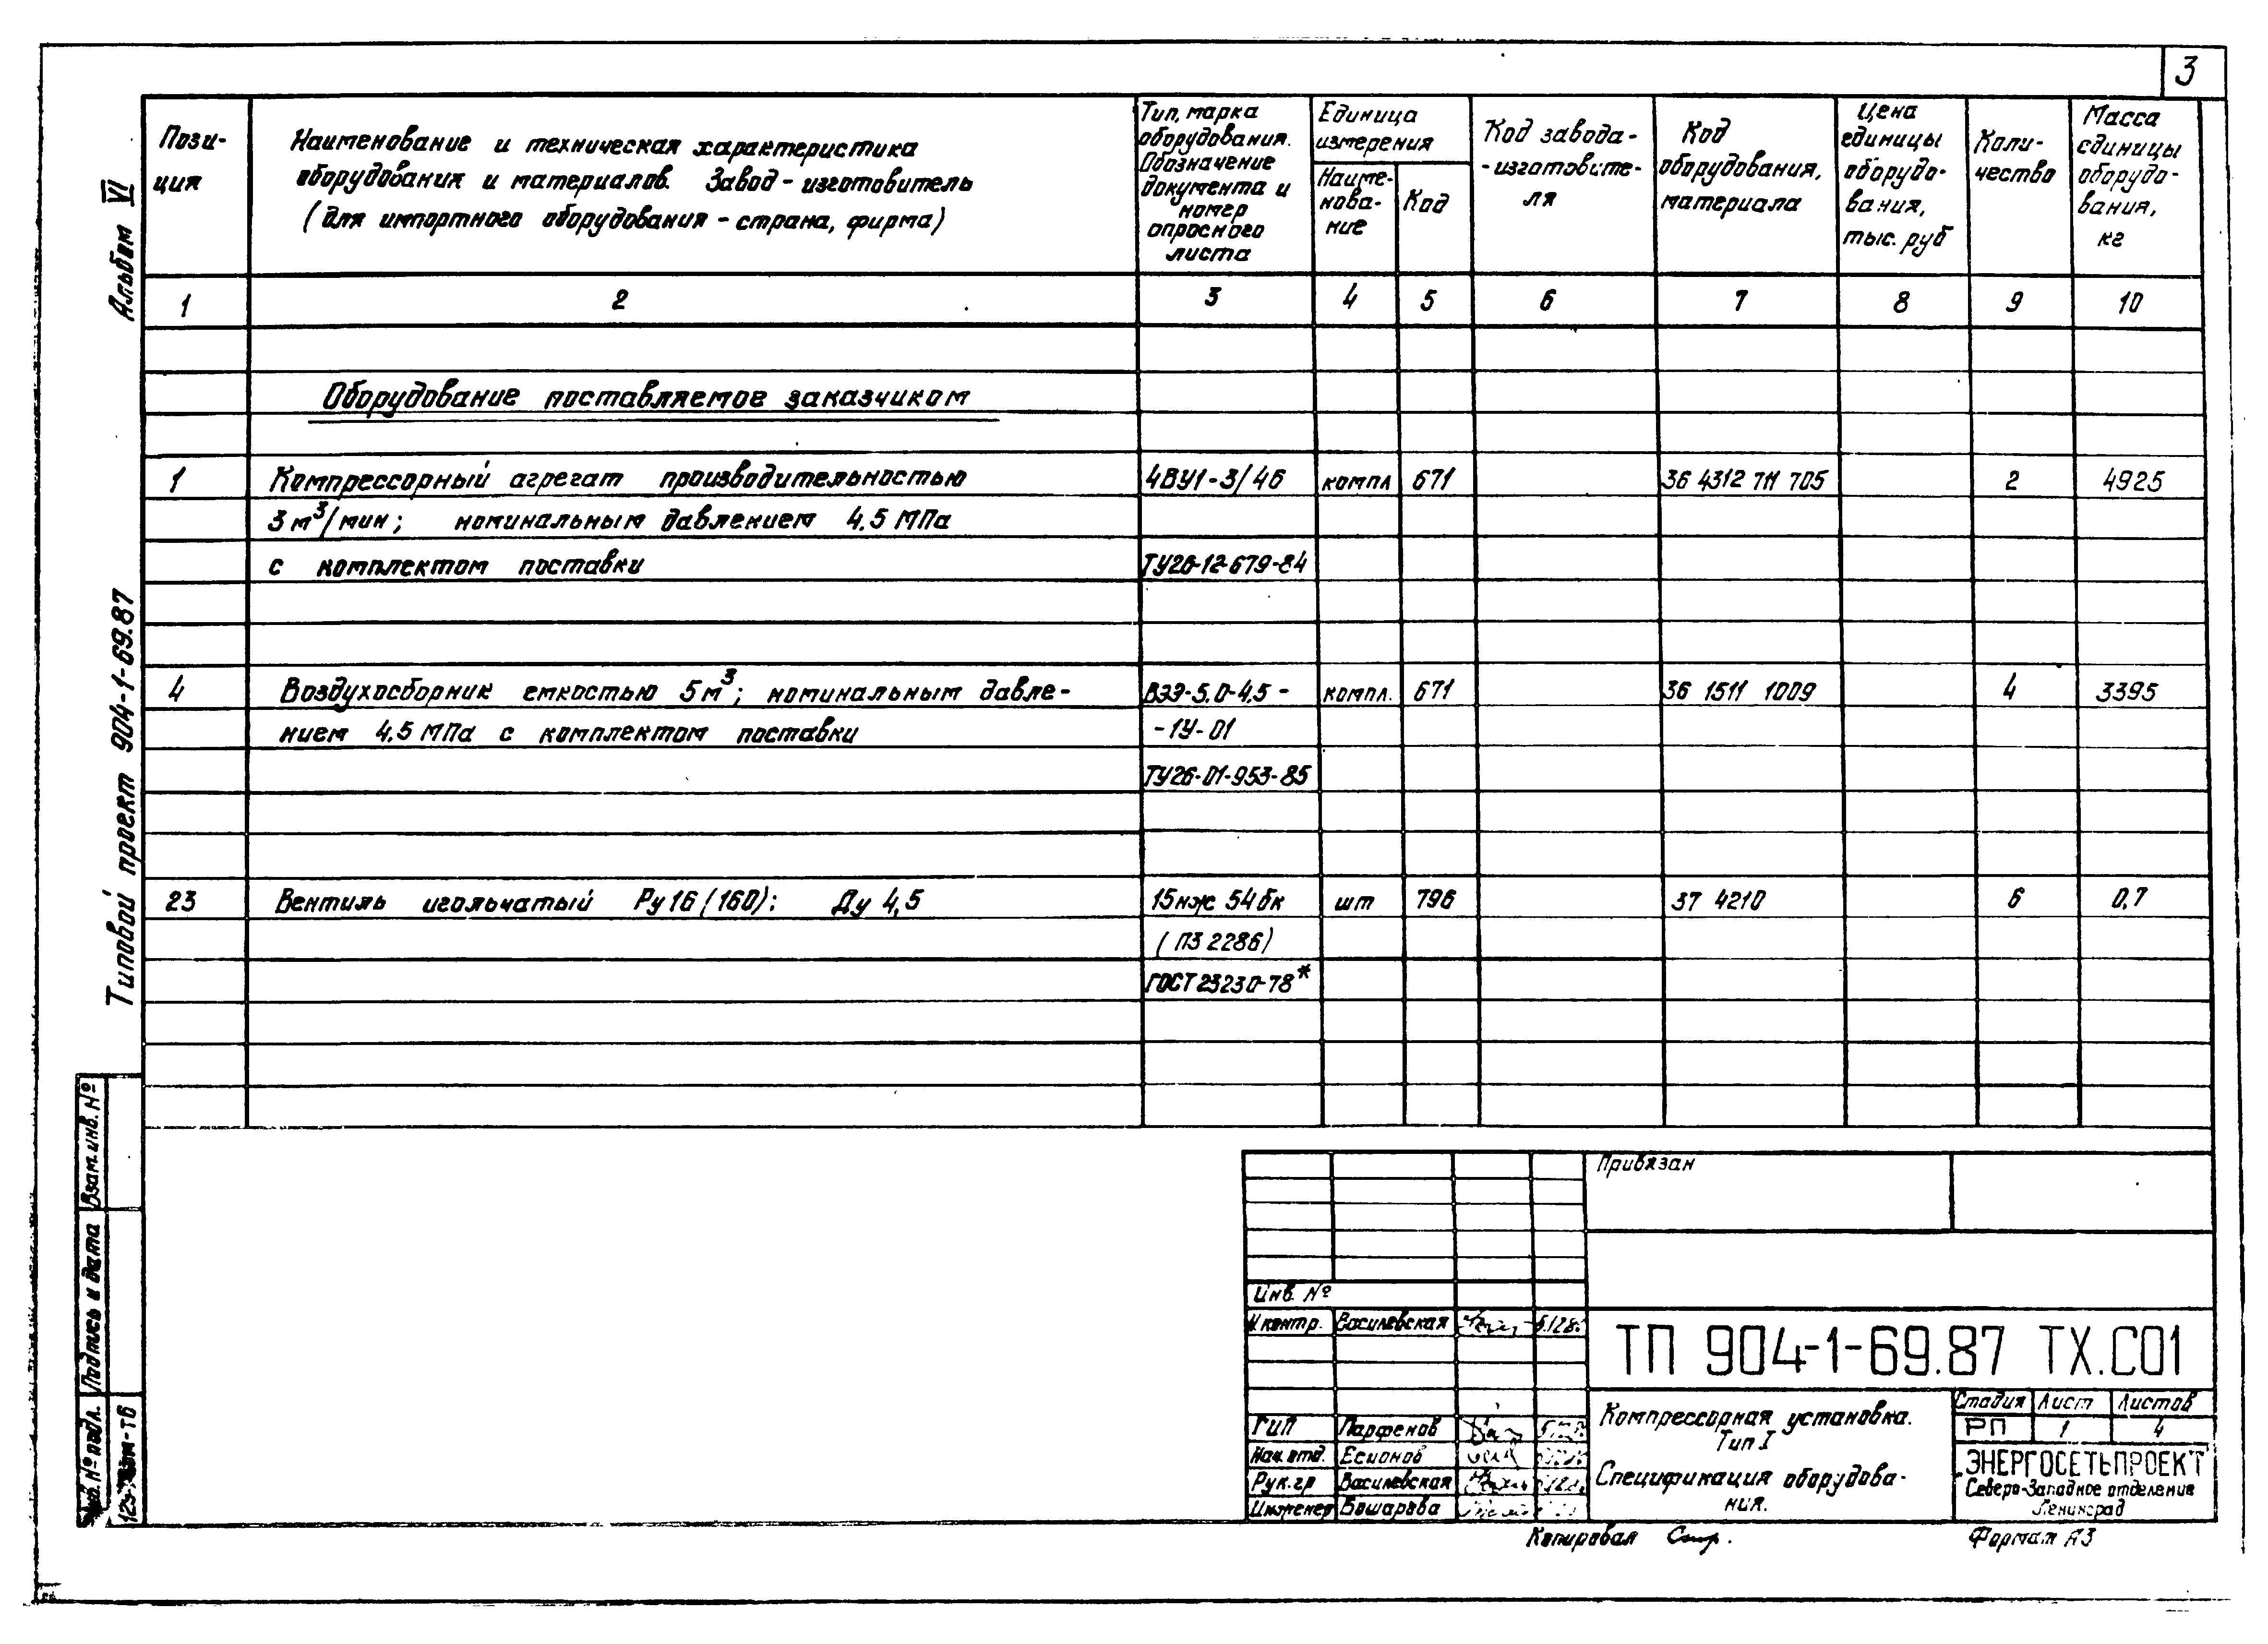 3
Альбом VI
Типовой проект 904-1-69.87
Пози-
ция
Наименование и техническая характеристика
оборудования и материалов. Завод-изготовитель
(для импортного оборудования - страна, фирма)
Тип, марка
оборудования.
Обозначение
документа и
номер
опросного
листа
Единица
измерения
Наиме-
нова-
ние
Код
Код завода-
-изготовите-
ля
Код
оборудования,
материала
Цена
единицы
оборудо-
вания,
тыс. руб
Коли-
чество
Масса
единицы
оборудо-
вания,
кг
1 2 3 4 5 6 7 8 9 10
Оборудование поставляемое заказчиком
1 Компрессорный агрегат производительностью 4ВУ1-3/46 компл 671 36 4312 711 705 2 4925
3 м³/мин; номинальным давлением 4.5 МПа
с комплектом поставки ТУ26-12-679-84
4 Воздухосборник емкостью 5м³; номинальным давле- ВЭЭ-5.0-4,5- компл. 671 36 1511 1009 4 3395
нием 4.5 МПа с комплектом поставки -1У-01
ТУ26-01-953-85
23 Вентиль игольчатый Ру16 (160); Ду 4,5 15нж 54бк шт 796 37 4210 6 0,7
(ПЗ 2286)
ГОСТ 23230-78*
Взам.инв.№
Подпись и дата
Инв.№ подл.
Привязан
Инв. №
Н.контр. Василевская
ТП 904-1-69.87 ТХ.С01
ГИП Парфенов
Нач.отд. Есионов
Рук.гр Василевская
Инженер Бошарова
Компрессорная установка.
Тип I
Спецификация оборудова-
ния.
Стадия Лист Листов
РП 1 4
ЭНЕРГОСЕТЬПРОЕКТ
Северо-Западное отделение
Ленинград
Копировал
Формат А3